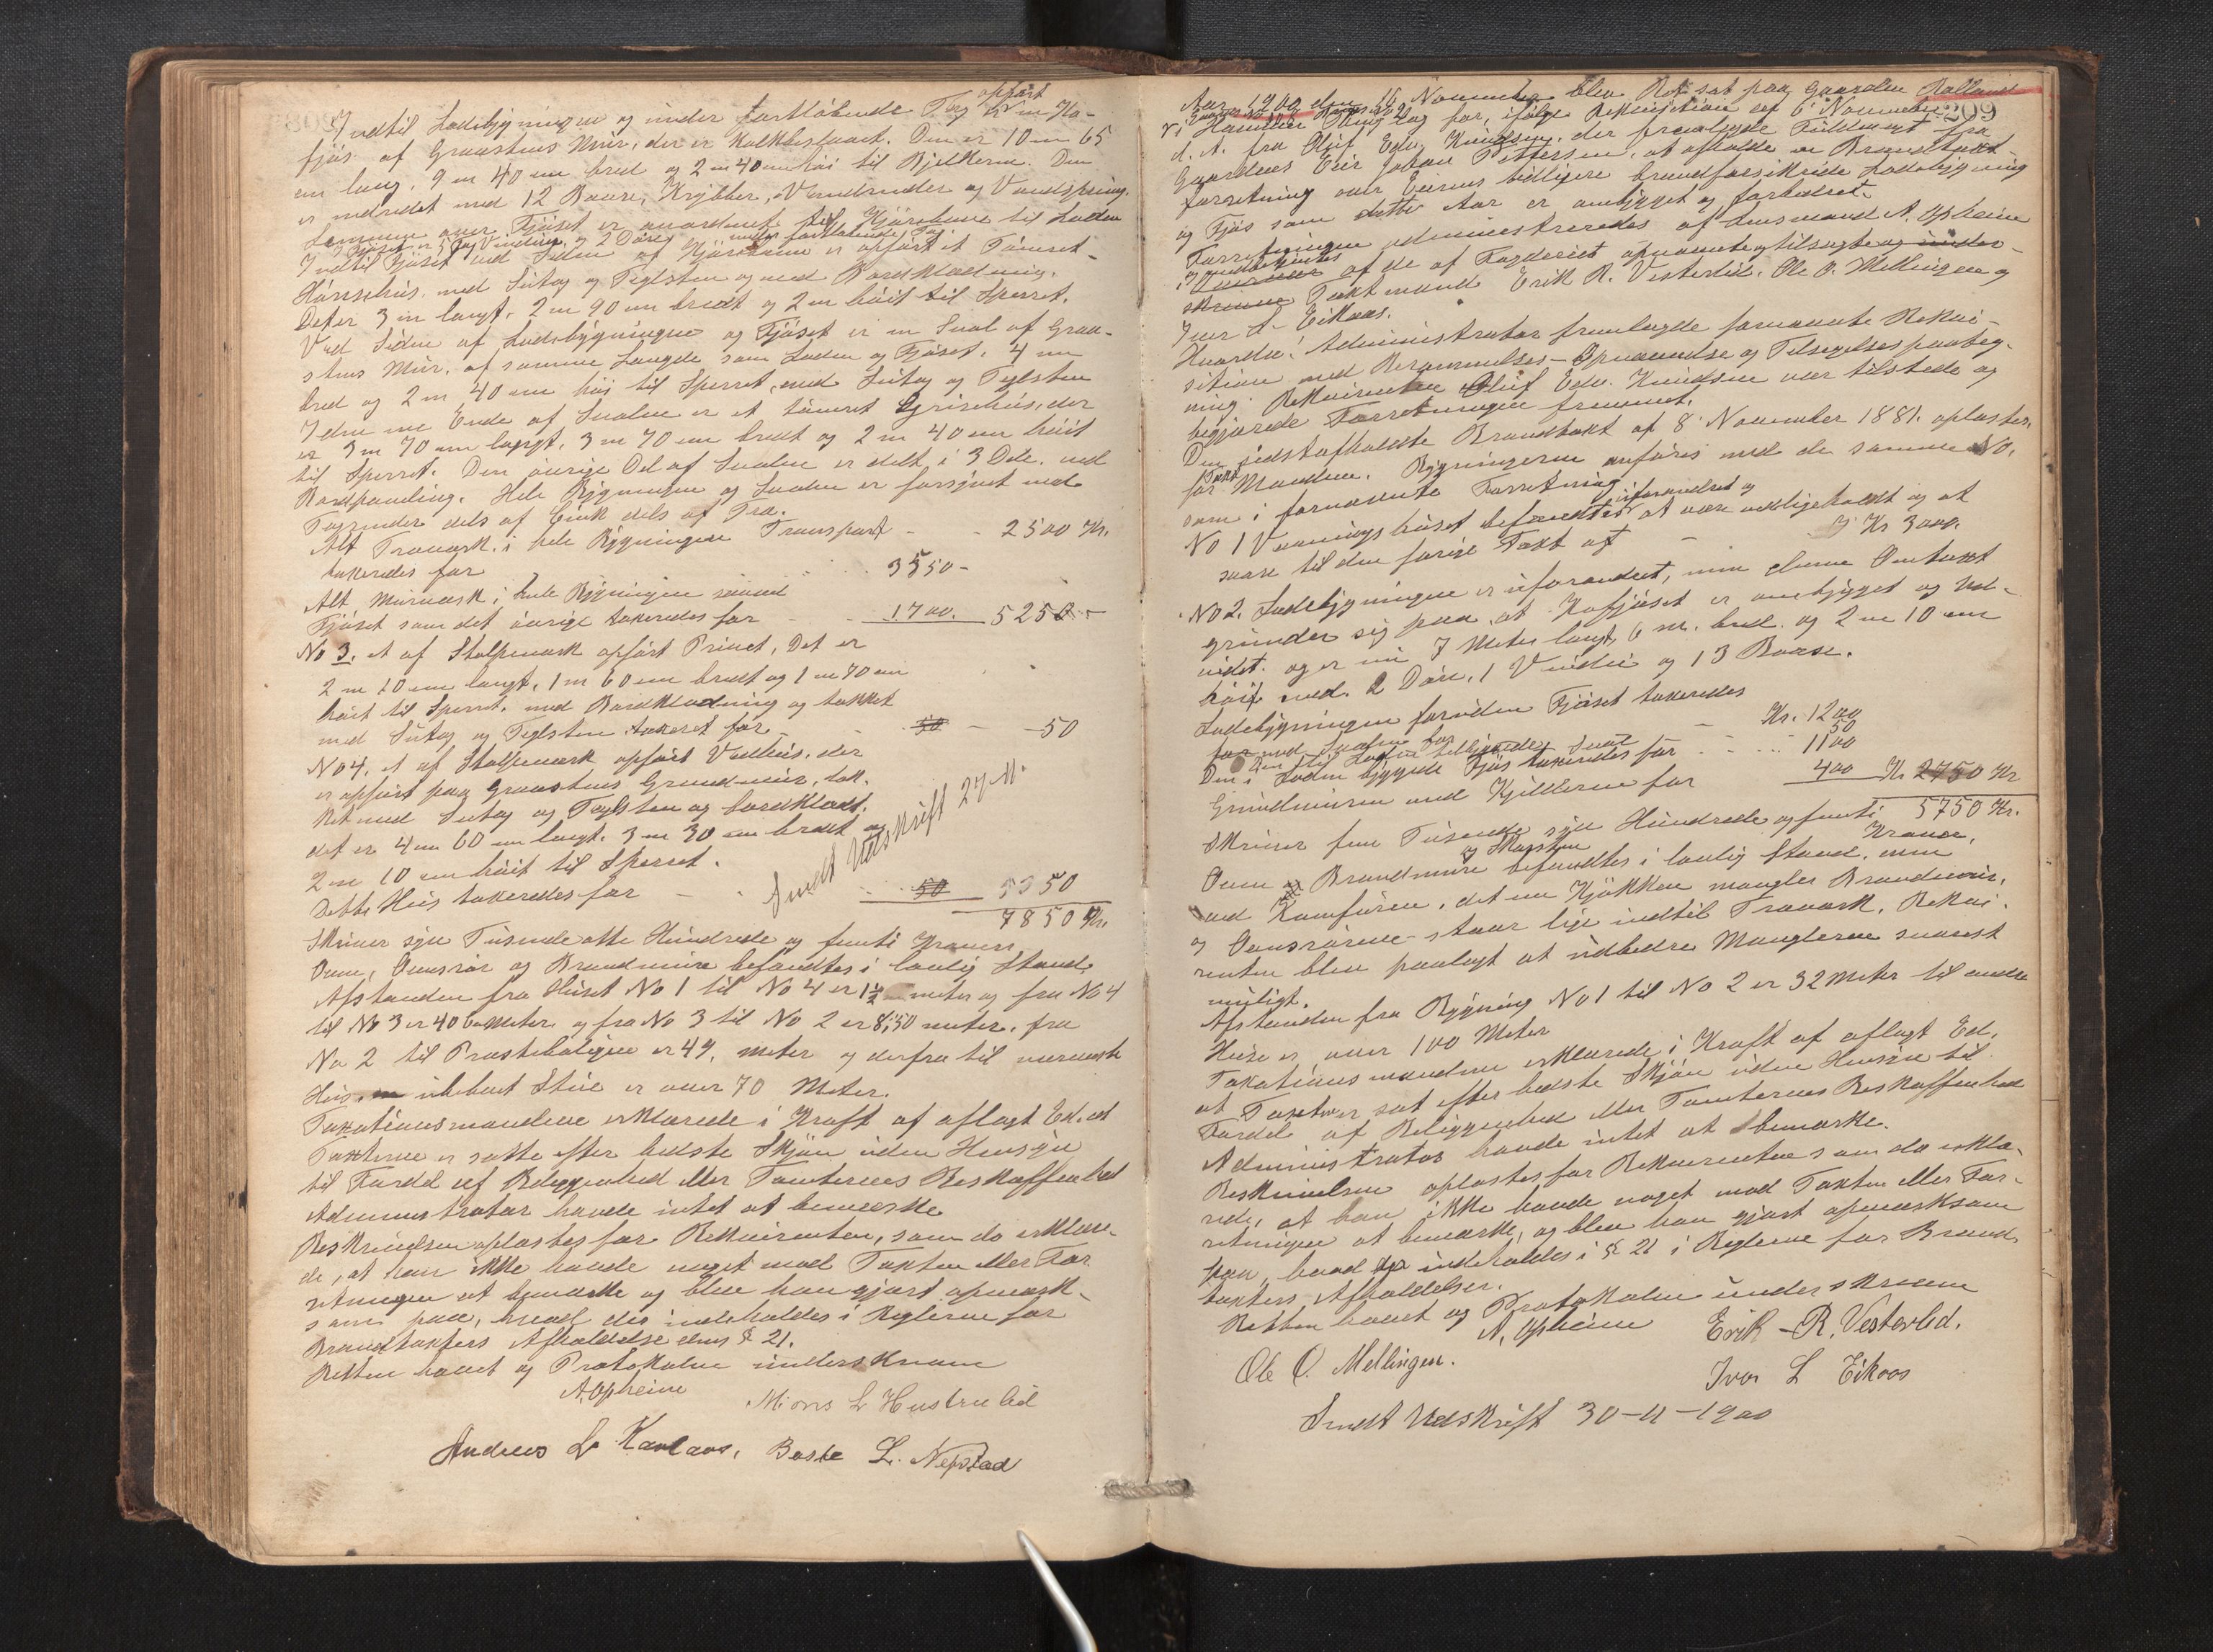 Indtil Ladebygningen og under fortløbende Tag opført en Ko-
fjøs af Graastens Mur, der er kalkbeslaaet. Den er 10 m 65
cm lang, 9 m 40 cm bred og 2 m 40 cm høi til Bjelkerne. Den
er indredet med 12 Baase, Krybber, Vandrender og Vandspring.
Lemmen over Fjøset er anordnet til Kjørebane til Laden
I Fjøset er 5 Fag Vinduer og 2 Døre. under fortløbende Tag
Indtil Fjøset ved Siden af Kjørebanen er opført et Tømret
Hønsehus med Sutag og Teglsten og med Bordklædning.
Det er 3 m langt, 2 m 90 cm bredt og 2 m høit til Sperret.
Ved Siden af Ladebygningen og Fjøset er en Sval af Graa-
stens Mur, af samme Længde som Laden og Fjøset, 4 m
bred og 2 m 40 cm høi til Sperret, med Sutag og Teglsten
I den ene Ende af Svalen er et tømret Grisehus, der
er 3 m 70 cm langt, 3 m 70 cm bredt og 2 m 40 cm høit
til Sperret. Den øvrige Del af Svalen er delt i 3 Dele med
Bordpaneling. Hele Bygningen og Svalen er forsynet med
Tagrender dels af Zink dels af Træ.
Transport - - 2500 Kr.
Alt Træværk i hele Bygningen
takseredes for 3550 -
Alt Murværk i hele Bygningen saavel
Fjøset som det øvrige takseredes for - 1700. 5250 -
No 3, et af Stolpeværk opført Privet, Det er
2 m 10 cm langt, 1 m 60 cm bredt og 1 m 70 cm
høit til Sperret, med Bordklædning og tækket
med Sutag og Teglsten takseret for - 50 - 50
No 4, et af Stolpeværk opført Vedhus, der
er opført paa Graastens Grundmur, tæk-
ket med Sutag og Teglsten og bordklædt,
det er 4 m 60 cm langt, 3 m 30 cm bredt og
2 m 10 cm høit til Sperret.
Dette Hus takseredes for - 50 50
Sendt Udskrift 27-11.
7850 Kr.
Skriver syv Tusende otte Hundrede og femti Kroner
Ovne, Ovnsrør og Brandmure befandtes i lovlig Stand
Afstanden fra Huset No 1 til No 4 er 1½ meter og fra No 4
til No 3 er 40 Meter og fra No 3 til No 2 er 8,50 meter, fra
No 2 til Præsteboligen er 49, meter og derfra til nærmeste
Hus, en ubeboet Stue er over 70 Meter.
Taxationsmændene erklærede i Kraft af aflagt Ed, at
Taxterne er satte efter bedste Skjøn uden Hensyn
til Fordel af Beliggenhed eller Tomternes Beskaffenhed
Administrator havde intet at bemærke
Beskrivelsen oplæstes for Rekvirenten, som da erklære-
de, at han ikke havde noget mod Taxten eller For-
retningen at bemærke og blev han gjort opmærk-
som paa, hvad der indeholdes i Reglerne for
Brandtaxters Afholdelse dens § 21.
Retten hævet og Protokolen underskreven
A. Opheim
Mons L Hustvedt
Andreas L. Kavlaas, Baste L. Nepstad
Aar 1900 den 16 November blev Ret sat paa Gaarden Rolland
Gaards No Brugs No
i Hammer Thinglag for, ifølge Rekvisition af 6 November
209
d. A. fra Oluf Edv. Knudsen, der fremlagde Fuldmagt fra
Gaardens Eier Johan Pettersen, at afholde en Brandtaxt-
forretning over Eierens tidligere brandforsikrede Ladebygning
og Fjøs som dette Aar er ombygget og forbedret.
Forretningen administreredes af Lensmand A. Opheim
og undertegnedes
i Overvær af de af Fogderiet opnævnte og tilsagte og under-
skrevne Taxtmænd Erik R. Vesterlid, Ole O. Mellingen og
Iver L. Eikaas.
Hvorda: Administrator fremlagde fornævnte Rekvi-
sition med Berammelses- Opnævnelse og Tilsigelsespaateg-
ning. Rekvirenten Oluf Edv. Knudsen var tilstede og
begjærede Forretningen fremmet.
Den sidstafholdte Brandtaxt af 8 November 1881 oplæstes
for Taxtmændene. Bygningerne anføres med de samme No.
som i fornævnte Forretning.
No 1 Vaaningshuset befandtes uforandret og at være vedligeholdt og at
svare til den forrige Taxt af - Kr 3000.
No 2. Ladebygningen er uforandret, men denne Omtaxt
grunder sig paa, at Kofjøset er ombygget og ud-
videt, og er nu 7 Meter langt, 6 m. bred og 2 m 10 cm
høit med 2 Døre, 1 Vindu og 13 Baase.
Ladebygningen foruden Fjøset takseredes
for med Svalen for - Kr. 1200
Den til Laden tilbyggede Sval 50
Den i Laden byggede Fjøs takseredes for - 1100
Grundmuren med Kjelderen for 400 Kr 2750 Kr
5750 Kr.
Skriver fem Tusende syv Hundrede og femti Kroner.
Ovne og Skorsten
og Brandmure befandtes i lovlig Stand, men
ved Komfuren, det ene Kjøkken mangler Brandmur,
og Ovnsrørene staar lige indtil Træværk. Rekvi-
renten blev paalagt at udbedre Manglerne snarest
muligt.
Afstanden fra Bygning No 1 til No 2 er 32 Meter til andre
Huse er over 100 Meter
Taxationsmændene erklærede i Kraft af aflagt Ed,
at Taxten er sat efter bedste Skjøn uden Hensyn til
Fordel af Beliggenhed eller Tomternes Beskaffenhed
Administrator havde intet at bemærke.
Beskrivelsen oplæstes for Rekvirenten som da erklæ-
rede, at han ikke havde noget mod Taxten eller For-
retningen at bemærke, og blev han gjort opmærksom
paa, hvad der indeholdes i § 21 i Reglerne for Brand-
taxters Afholdelse.
Retten hævet og Protokolen underskreven
A. Opheim Erik R. Vesterlid.
Ole O. Mellingen. Iver L Eikaas
Sendt Udskrift 30-11-1900